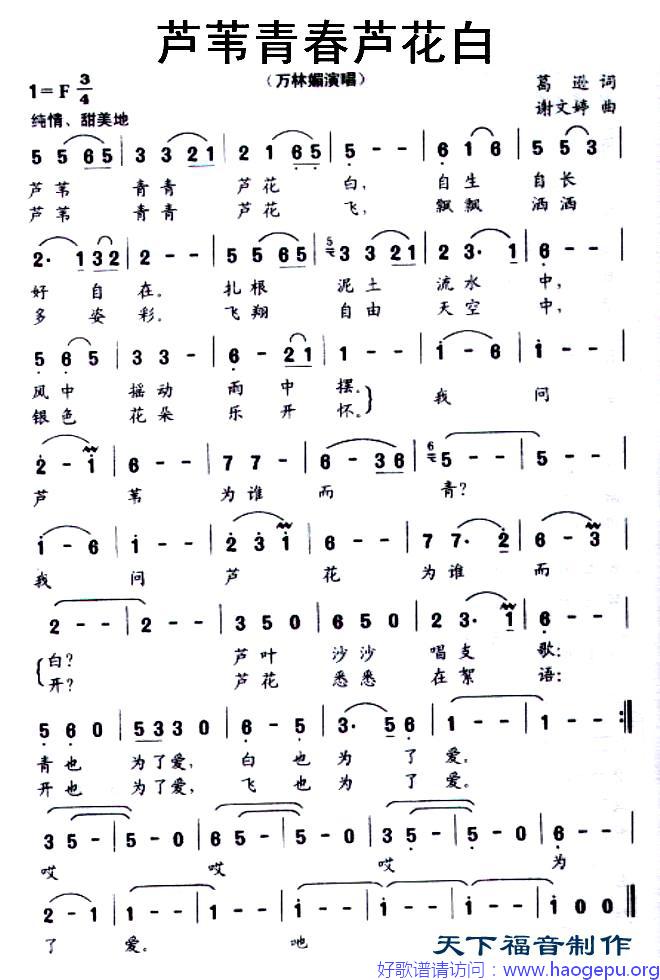 芦苇青春芦花白
(万林媚演唱)
1=F 3/4
葛逊 词
纯情、甜美地
谢文婷 曲
5 5 6 5 | 3 3 2 1 | 2 1 6 5 | 5 - - | 6 1 6 | 5 5 3 |
芦苇 青青 芦花 白, 自生 自长
芦苇 青青 芦花 飞, 飘飘 洒洒
2· 1 3 2 | 2 - - | 5 5 6 5 | 3 3 2 1 | 2 3· 1 | 6 - - |
好自在。 扎根 泥土 流水 中,
多姿彩。 飞翔 自由 天空 中,
5 6 5 | 3 3 - | 6 - 2 1 | 1 - - | 1 - 6 | 1 - - |
风中 摇动 雨中 摆。 我 问
银色 花朵 乐开 怀。
2 - 1 | 6 - - | 7 7 - | 6 - 3 6 | 5 - - | 5 - - |
芦 苇 为谁 而 青?
1 - 6 | 1 - - | 2 3 1 | 6 - - | 7 7· 2 | 6 - 3 |
我 问 芦 花 为谁 而
2 - - | 2 - - | 3 5 0 | 6 5 0 | 2 3· 1 | 6 - - |
白? 芦叶 沙沙 唱支 歌:
开? 芦花 悉悉 在絮 语:
5 6 0 | 5 3 3 0 | 6 - 5 | 3· 5 6 | 1 - - | 1 - - :|
青也 为了爱, 白也为 了 爱。
开也 为了爱, 飞也为 了 爱。
3 5 - - | 5 - - | 5 - 0 | 6 5 - - | 5 - 0 | 3 5 - - | 5 - 0 | 6 - - |
哎 哎 哎 为
2 - 1 | 1 - - | 1 - - | 1 - - | 1 - - | 1 - - | 1 - 0 ‖
了 爱。 吔
天下福音制作
好歌谱请访问：www.haogepu.com